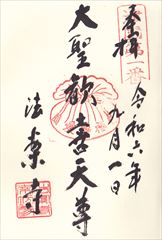 奉拝
第一番
令和六年
九月一日
大聖歓喜天尊
法案寺